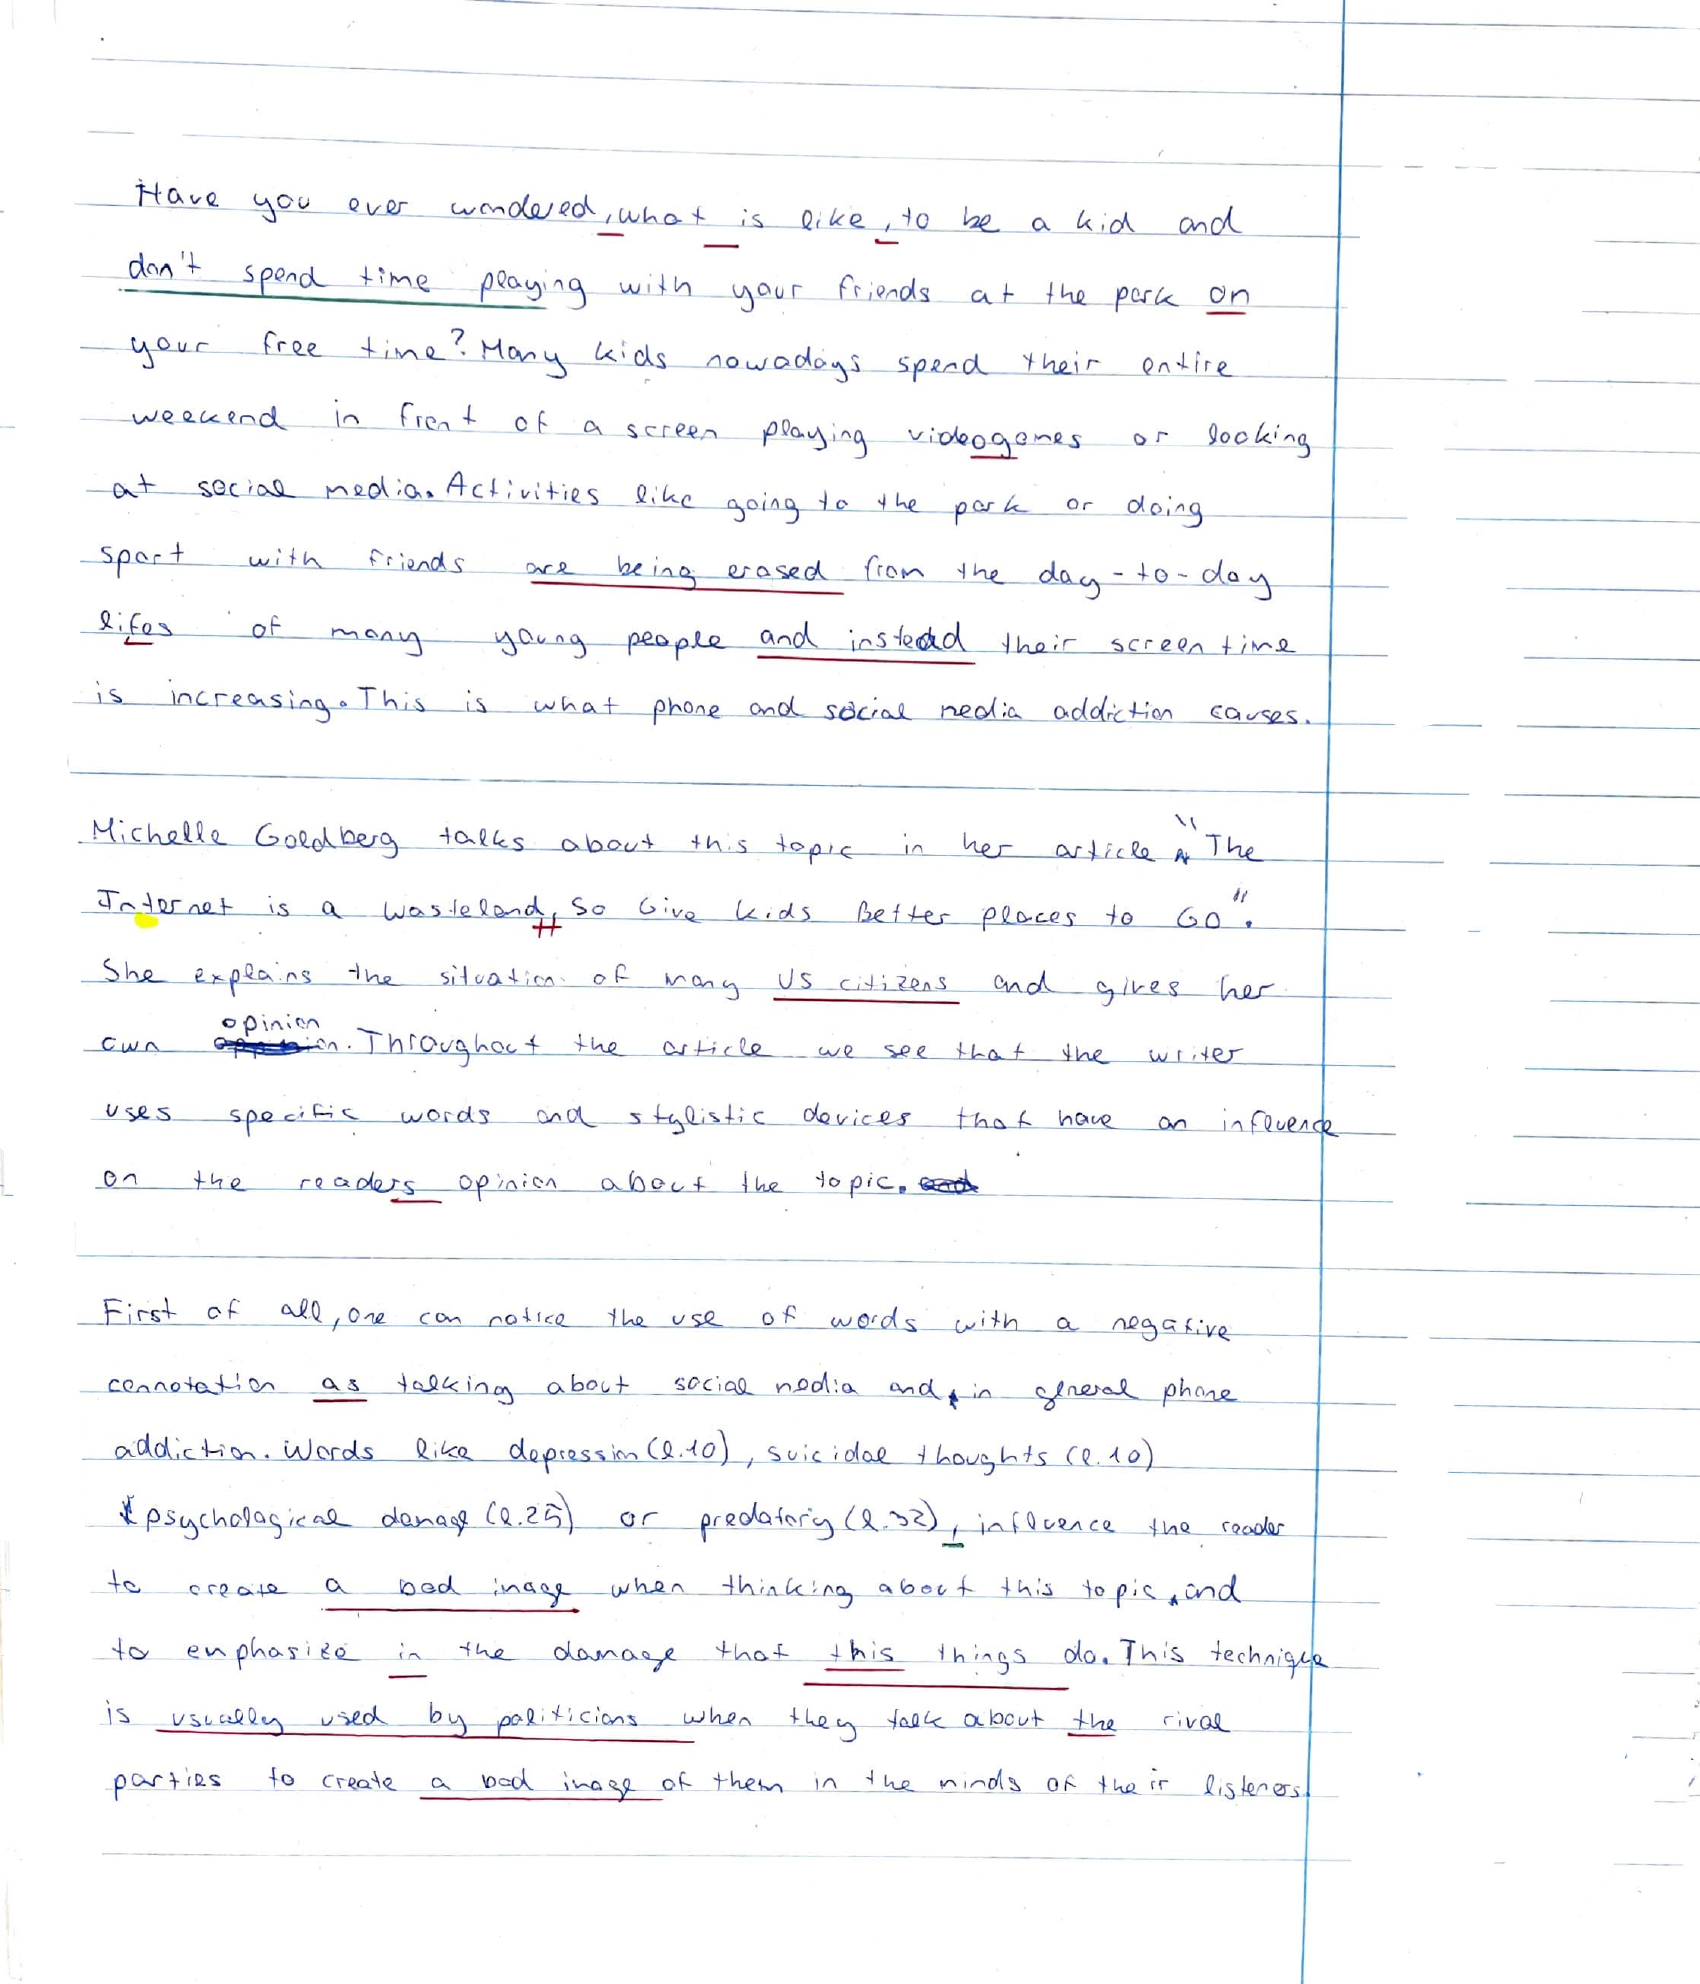 Have you ever wondered, what is like, to be a kid and
don't spend time playing with your friends at the park on
your free time? Many kids nowadays spend their entire
weekend in front of a screen playing videogames or looking
at social media. Activities like going to the park or doing
sport with friends are being erased from the day-to-day
lifes of many young people and instead their screen time
is increasing. This is what phone and social media addiction causes.
Michelle Goldberg talks about this topic in her article "The
Internet is a wasteland, So Give kids Better places to GO".
She explains the situation of many US citizens and gives her
own opinion. Throughout the article we see that the writer
uses specific words and stylistic devices that have an influence
on the readers opinion about the topic.
First of all, one can notice the use of words with a negative
connotation as talking about social media and, in general phone
addiction. Words like depression (l.10), suicidal thoughts (l.10)
psychological damage (l.25) or predatory (l.32), influence the reader
to create a bad image when thinking about this topic, and
to emphasize in the damage that this things do. This technique
is usually used by politicians when they talk about the rival
parties to create a bad image of them in the minds of their listeners.